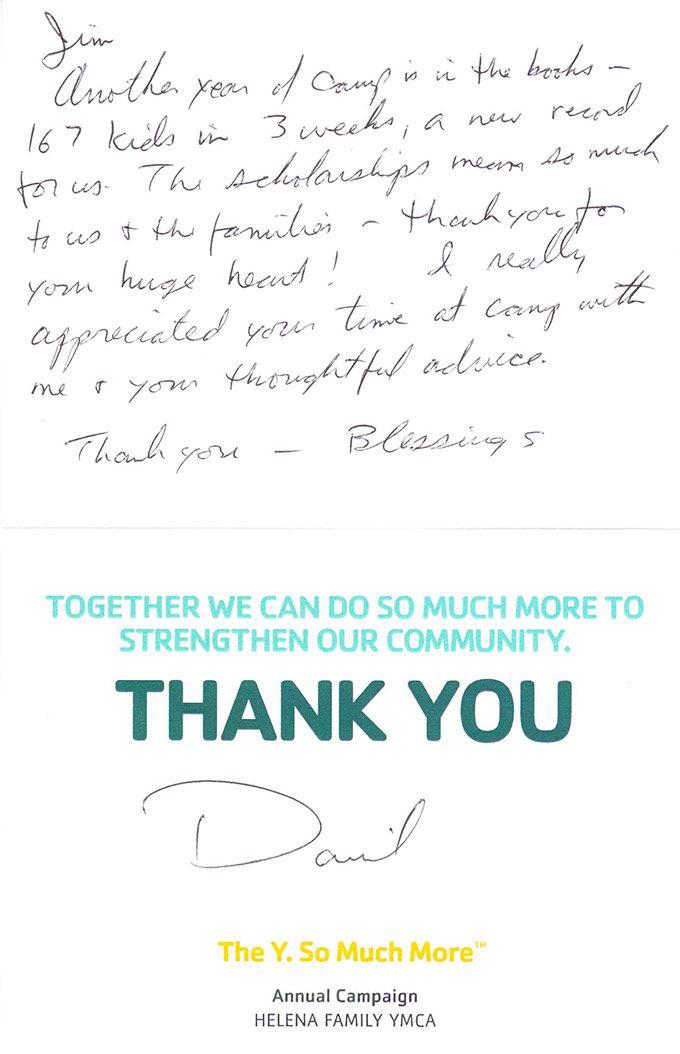 Jim
Another year of camp is in the books –
167 kids in 3 weeks, a new record
for us. The scholarships mean so much
to us & the families – thank you for
your huge heart! I really
appreciated your time at camp with
me & your thoughtful advice.
Thank you – Blessings
TOGETHER WE CAN DO SO MUCH MORE TO
STRENGTHEN OUR COMMUNITY.
THANK YOU
David
The Y. So Much More™
Annual Campaign
HELENA FAMILY YMCA